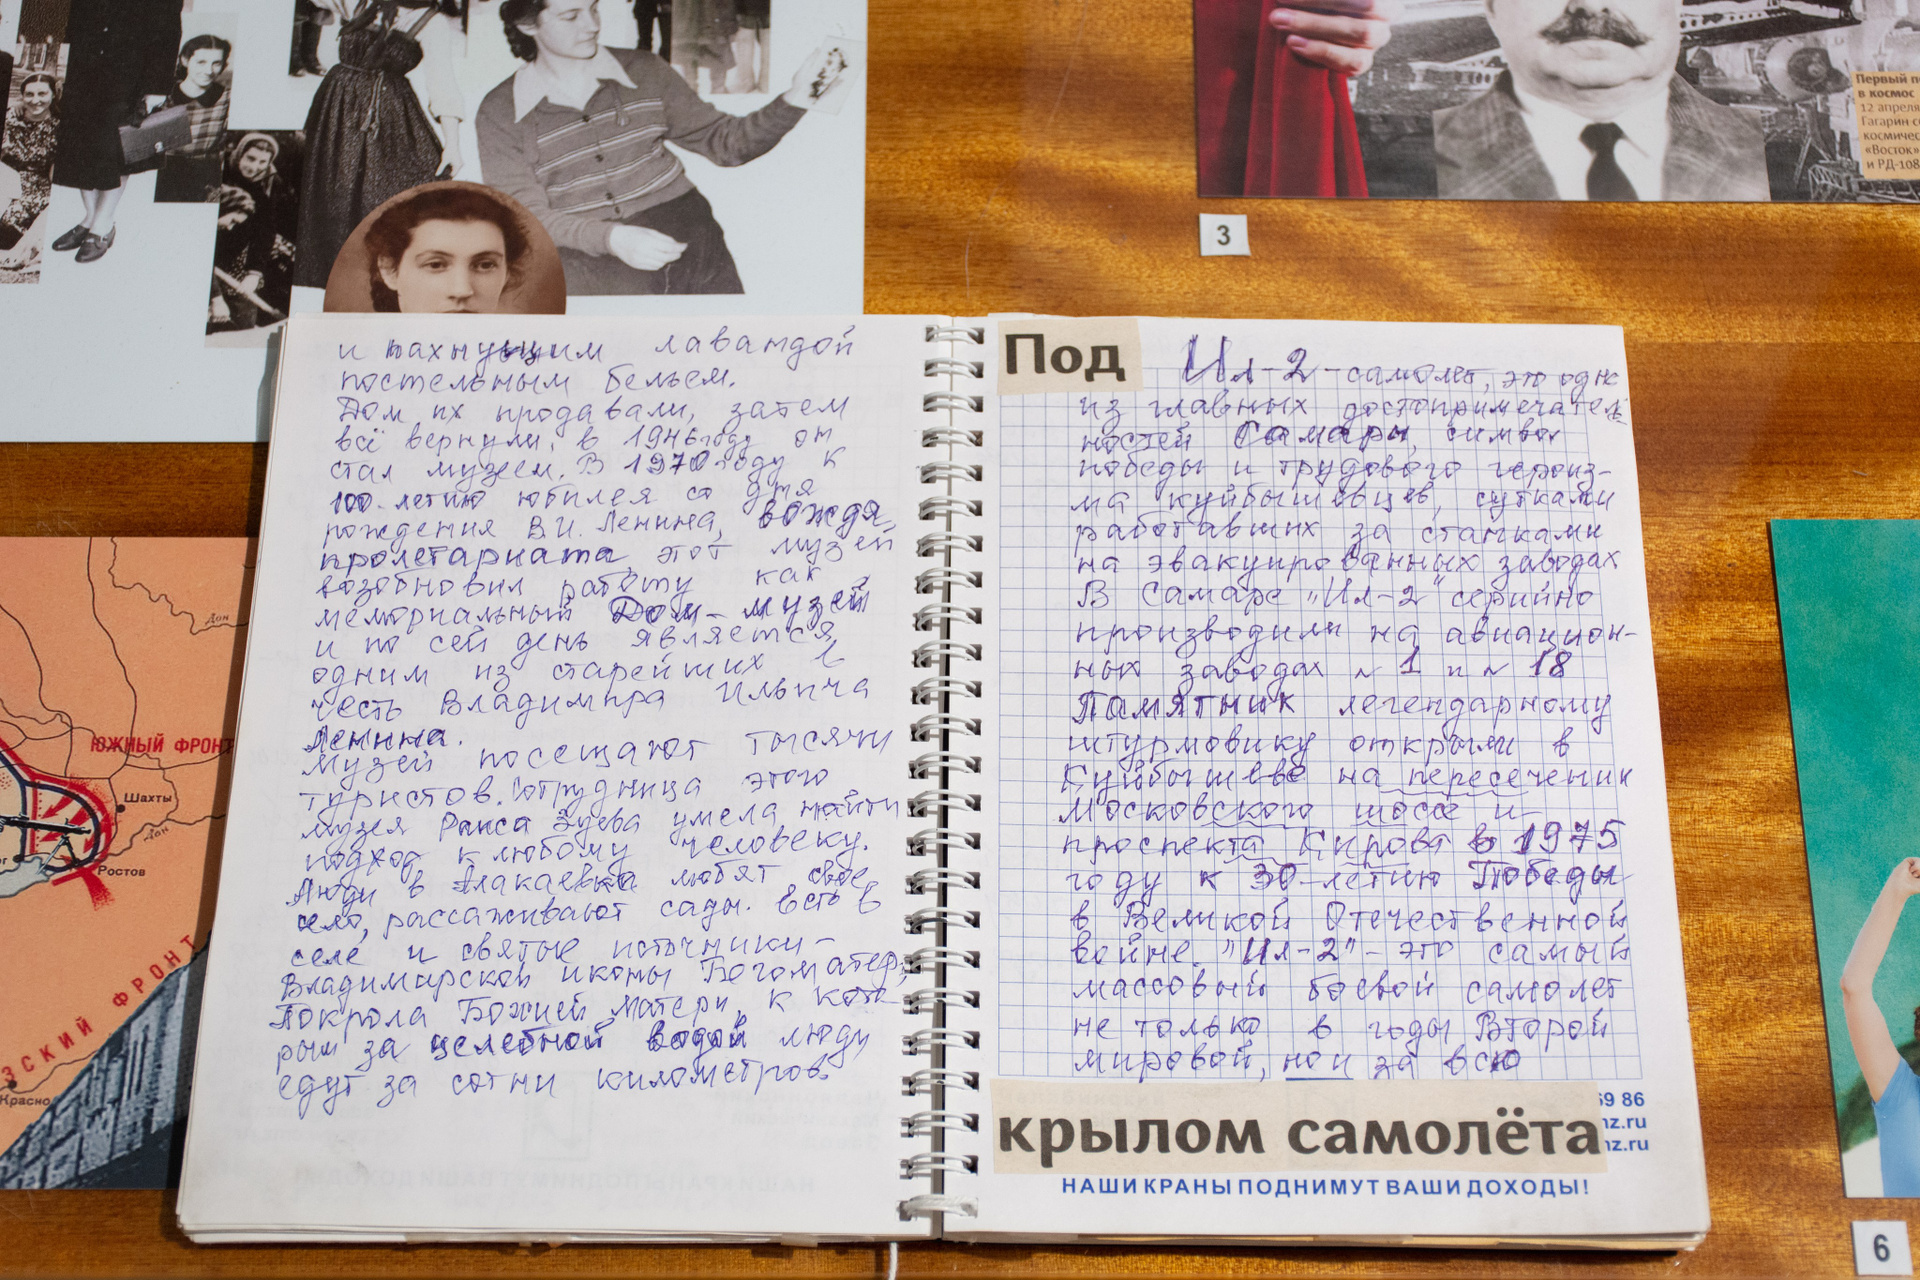 Первый по
в космос
12 апреля
Гагарин со
космичес
«Восток»
и РД-108
3
и пахнущим лавандой
постельным бельем.
Дом их продавали, затем
всё вернули, в 1946 году он
стал музеем. В 1970 году к
100-летию юбилея со дня
рождения В.И. Ленина, вождя
пролетариата, этот музей
возобновил работу как
мемориальный Дом-музей
и по сей день является
одним из старейших в
честь Владимира Ильича
Ленина.
Музей посещают тысячи
туристов. Сотрудница этого
музея Раиса Зуева умела найти
подход к любому человеку.
Люди в Алакаевка любят свое
село, рассаживают сады. Есть в
селе и святые источники -
Владимирской иконы Богоматер,
Покрола Божией Матери, к кото-
рым за целебной водой люди
едут за сотни километров.
Под
Ил-2 - самолет, это одна
из главных достопримечатель
ностей Самары, символ
победы и трудового героиз-
ма куйбышевцев, сутками
работавших за станками
на эвакуированных заводах
В Самаре "Ил-2" серийно
производили на авиацион-
ных заводах № 1 и № 18
Памятник легендарному
штурмовику открыли в
Куйбышеве на пересечении
Московского шоссе и
проспекта Кирова в 1975
году к 30-летию Победы
в Великой Отечественной
войне. "Ил-2" - это самый
массовый боевой самолет
не только в годы Второй
мировой, но и за всю
69 86
nz.ru
nz.ru
крылом самолёта
НАШИ КРАНЫ ПОДНИМУТ ВАШИ ДОХОДЫ!
Дон
ЮЖНЫЙ ФРОНТ
Шахты
Дон
Ростов
ЗСКИЙ ФРОНТ
Красно
6